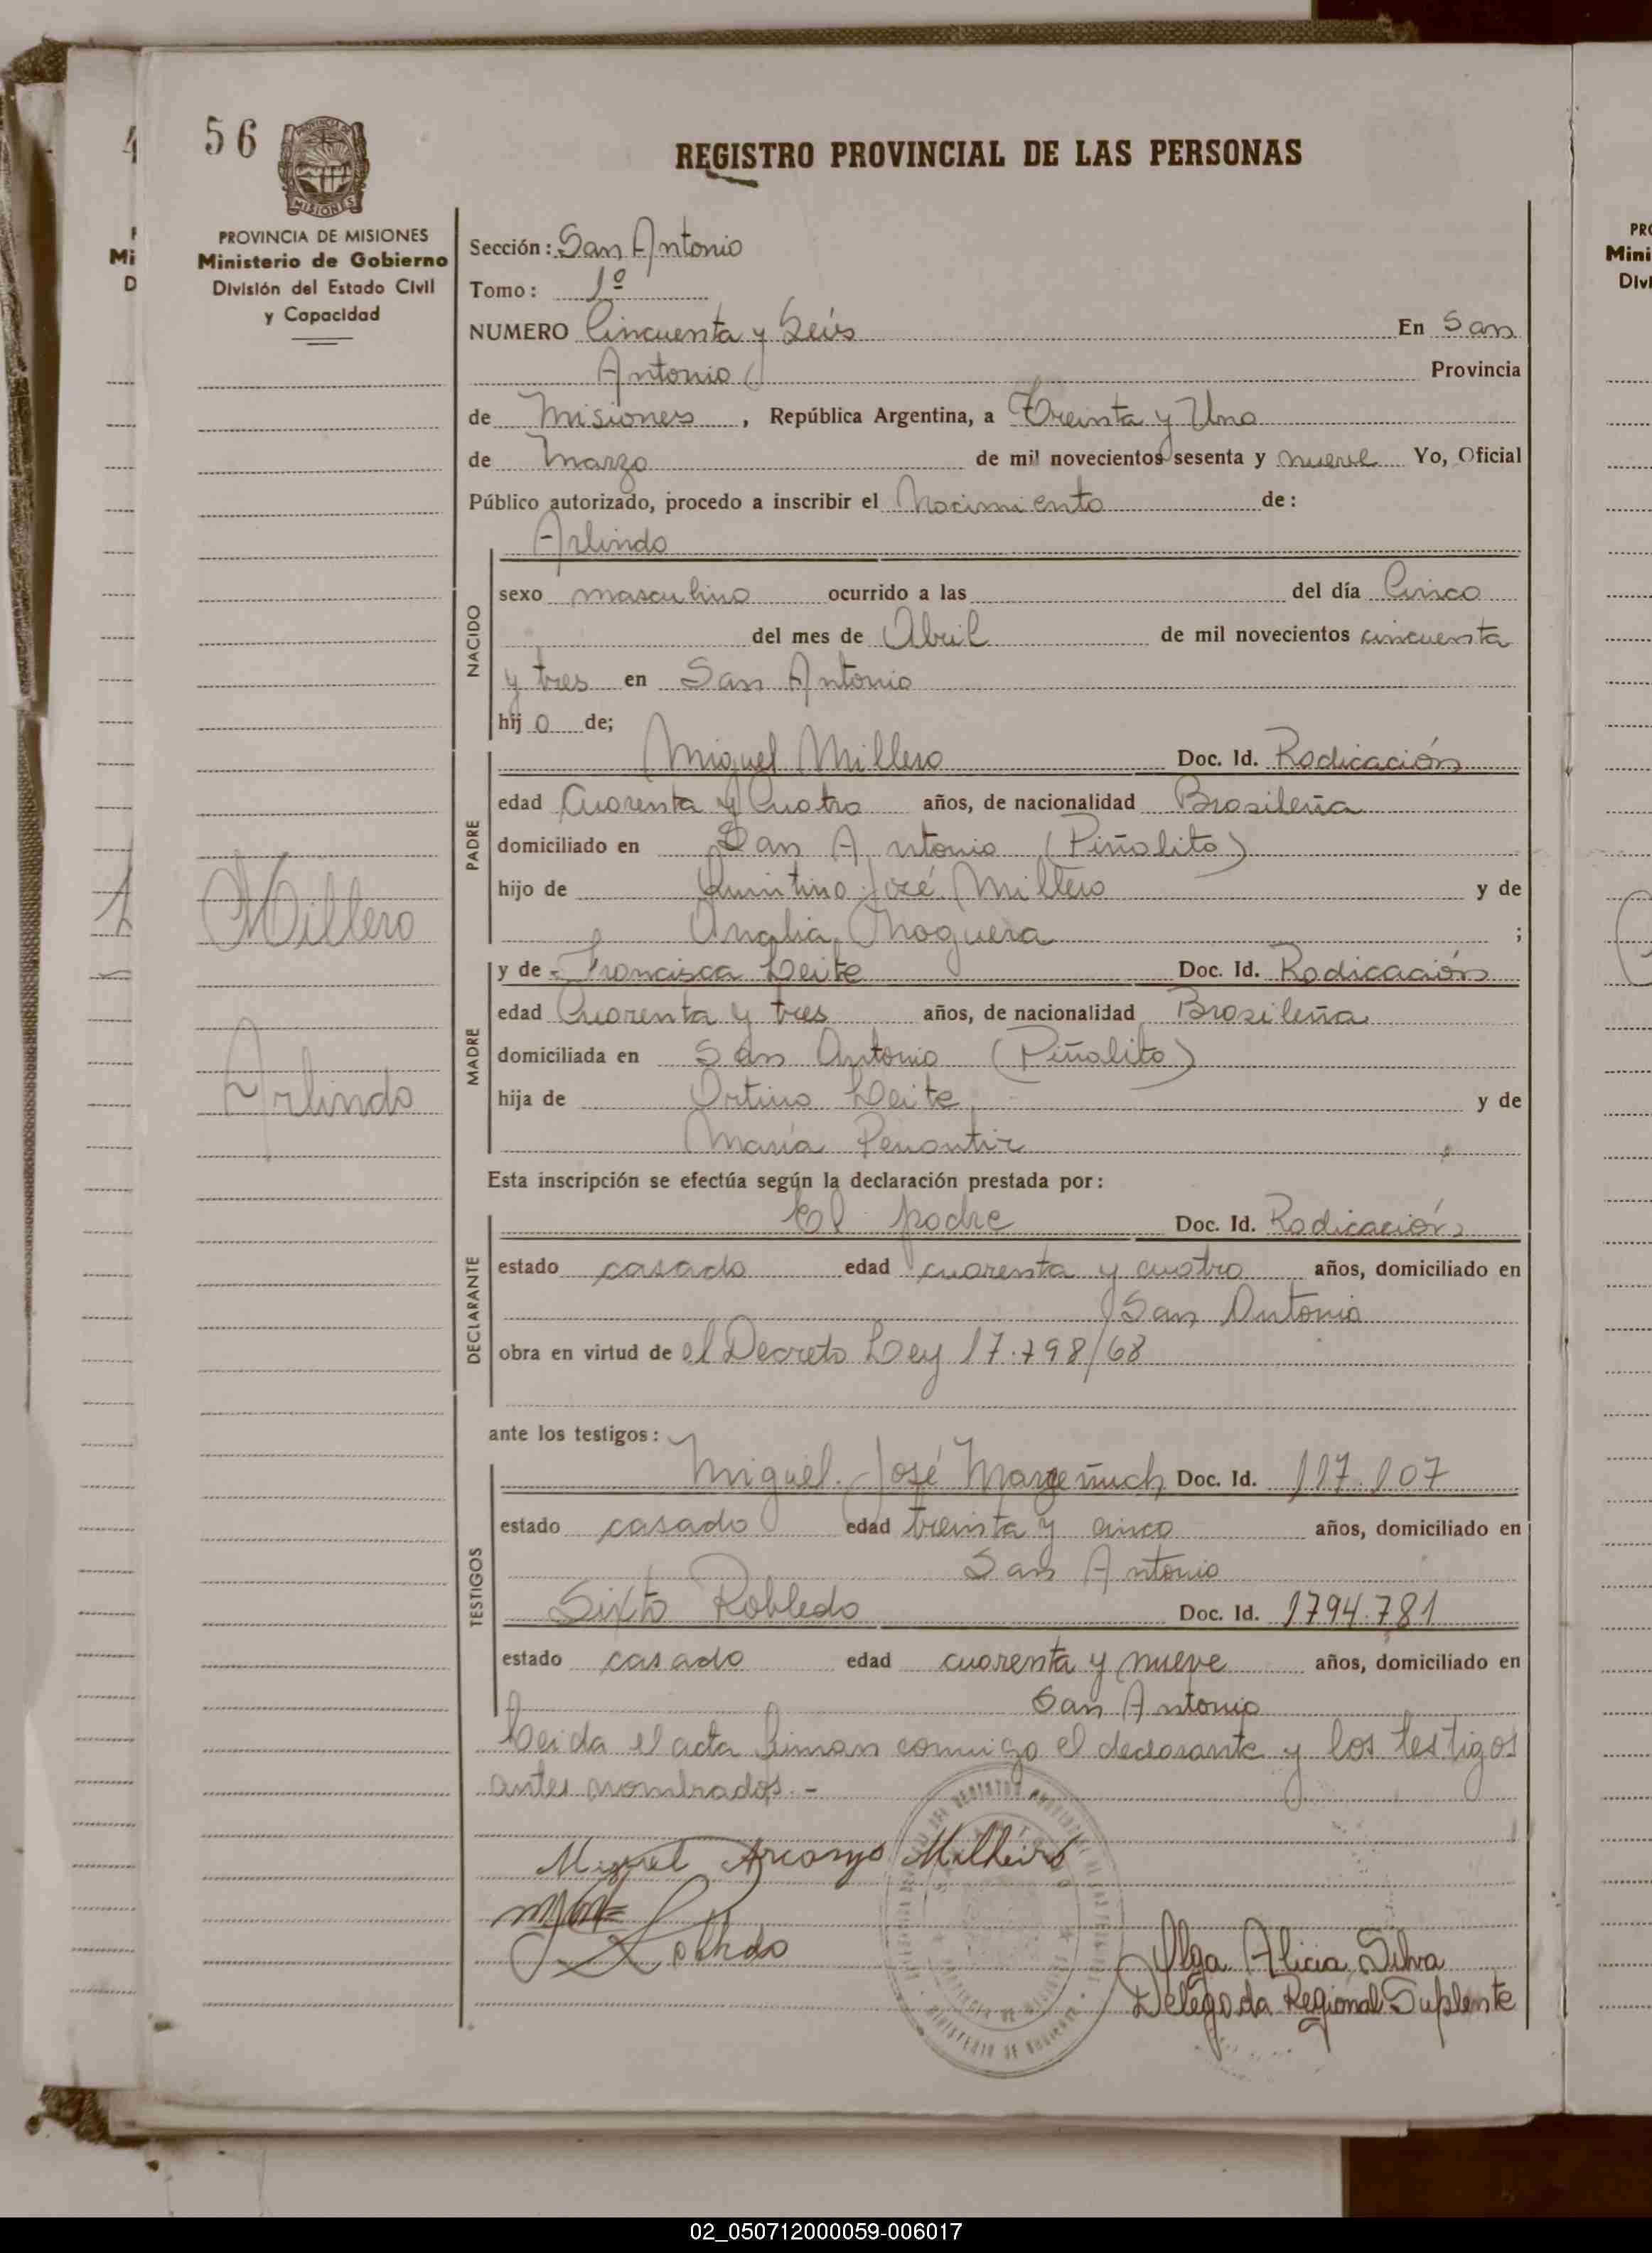 56
REGISTRO PROVINCIAL DE LAS PERSONAS
PROVINCIA DE MISIONES
Ministerio de Gobierno
División del Estado Civil
y Capacidad
Sección: San Antonio
Tomo: 1º
NUMERO Cincuenta y Seis En San
Antonio Provincia
de Misiones, República Argentina, a Treinta y Uno
de Marzo de mil novecientos sesenta y nueve Yo, Oficial
Público autorizado, procedo a inscribir el Nacimiento de:
Arlindo
NACIDO
sexo masculino ocurrido a las del día Cinco
del mes de Abril de mil novecientos cincuenta
y tres en San Antonio
hijo de;
PADRE
Miguel Millero Doc. Id. Radicación
edad Cuarenta y Cuatro años, de nacionalidad Brasileña
domiciliado en San Antonio (Piñalito)
hijo de Quintino José Millero y de
Noguera ;
Millero
MADRE
y de Francisca Leite Doc. Id. Radicación
edad Cuarenta y tres años, de nacionalidad Brasileña
domiciliada en San Antonio (Piñalito)
Arlindo
hija de Ortino Leite y de
María
Esta inscripción se efectúa según la declaración prestada por:
DECLARANTE
El padre Doc. Id. Radicación
estado casado edad cuarenta y cuatro años, domiciliado en
San Antonio
obra en virtud de el Decreto Ley 17.798/68
ante los testigos:
TESTIGOS
Miguel José Doc. Id. 117.107
estado casado edad treinta y cinco años, domiciliado en
San Antonio
Sixto Robledo Doc. Id. 1794.781
estado casado edad cuarenta y nueve años, domiciliado en
San Antonio
Leida el acta firman conmigo el declarante y los testigos
antes nombrados.-
Miguel Arcanjo Milheiro
Robledo
Olga Alicia Silva
Delegada Regional Suplente
02_050712000059-006017